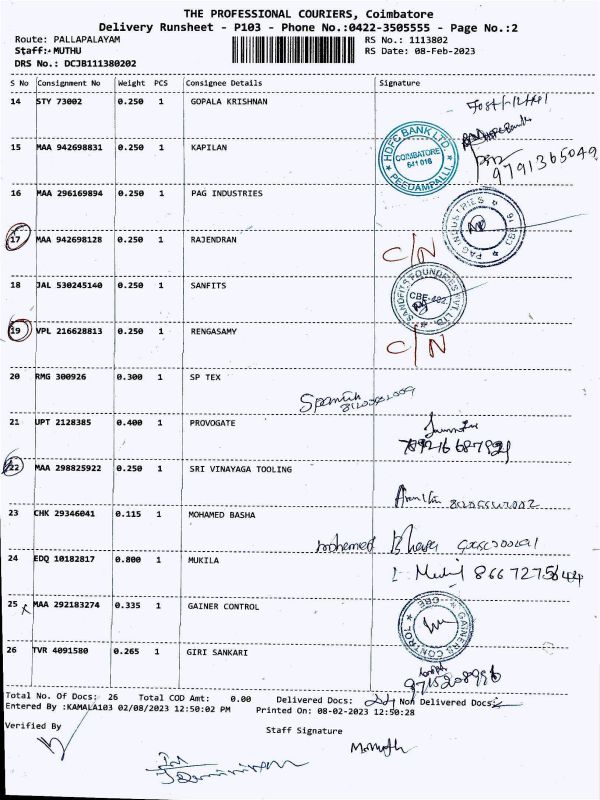 THE PROFESSIONAL COURIERS, Coimbatore
Delivery Runsheet - P103 - Phone No.:0422-3505555 - Page No.:2
Route: PALLAPALAYAM RS No.: 1113802
Staff: MUTHU RS Date: 08-Feb-2023
DRS No.: DCJB111380202
S No Consignment No Weight PCS Consignee Details Signature
14 STY 73002 0.250 1 GOPALA KRISHNAN
15 MAA 942698831 0.250 1 KAPILAN
HDFC BANK LTD. COIMBATORE 641 016 PEEDAMPALLI
9791365049
16 MAA 296169894 0.250 1 PAG INDUSTRIES
PAG INDUSTRIES
17 MAA 942698128 0.250 1 RAJENDRAN C/N
18 JAL 530245140 0.250 1 SANFITS
SANDFITS FOUNDRIES PVT LTD
19 VPL 216628813 0.250 1 RENGASAMY C/N
20 RMG 300926 0.300 1 SP TEX
21 UPT 2128385 0.400 1 PROVOGATE
22 MAA 298825922 0.250 1 SRI VINAYAGA TOOLING
23 CHK 29346041 0.115 1 MOHAMED BASHA
mohamed
24 EDQ 10182817 0.800 1 MUKILA
25 MAA 292183274 0.335 1 GAINER CONTROL
GAINERS CONTROL CBE
26 TVR 4091580 0.265 1 GIRI SANKARI
Total No. Of Docs: 26 Total COD Amt: 0.00 Delivered Docs: Non Delivered Docs:
Entered By :KAMALA103 02/08/2023 12:50:02 PM Printed On: 08-02-2023 12:50:28
Verified By Staff Signature